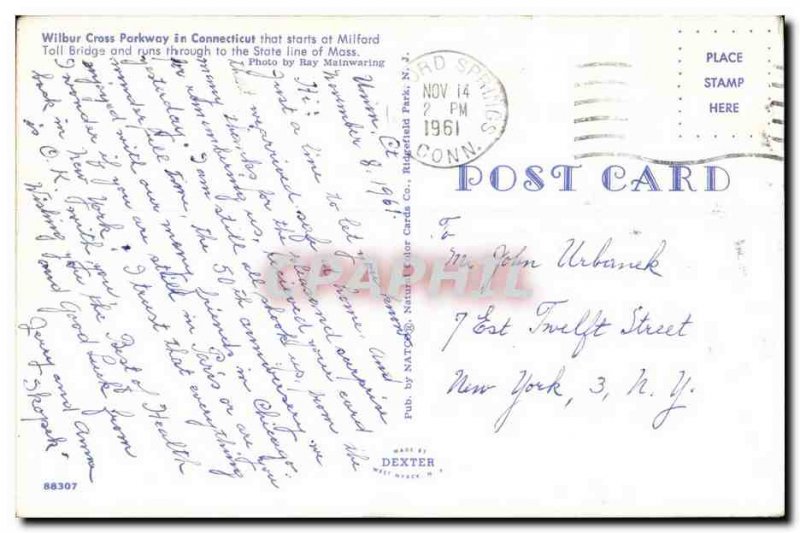 Wilbur Cross Parkway in Connecticut that starts at Milford
Toll Bridge and runs through to the State line of Mass.
Photo by Ray Mainwaring
Union, Ct
November 8, 1961
Hi!
Just a line to let you know
that we arrived safe home. and
many thanks for the surprise
in remembering us, received your card
yesterday. I am still all shook up, from the
wonderful time, the 50th anniversary we
enjoyed with our many friends in Chicago.
I wonder if you are still in Paris or are you
back in New York. I trust that everything
is O.K. with you.
Wishing you the Best of Health
and Good Luck from
Jerry and Anna
Skopek.
88307
Pub. by NATCO® Natural Color Cards Co., Ridgefield Park, N. J.
MADE BY
DEXTER
WEST NYACK, N.Y.
ORD SPRINGS
NOV 14
2 PM
1961
CONN.
PLACE
STAMP
HERE
POST CARD
To
Mr. John Urbanek
7 East Twelft Street
New York, 3, N. Y.
CPAPHIL